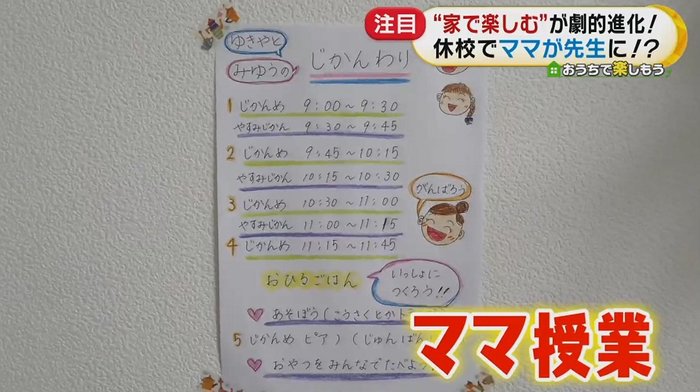 注目
“家で楽しむ”が劇的進化！
休校でママが先生に！？
おうちで楽しもう
ゆきやと
みゆうの
じかんわり
1 じかんめ 9:00～9:30
やすみじかん 9:30～9:45
2 じかんめ 9:45～10:15
やすみじかん 10:15～10:30
3 じかんめ 10:30～11:00
がんばろう
やすみじかん 11:00～11:15
4 じかんめ 11:15～11:45
おひるごはん
いっしょに
つくろう!!
あそぼう(こうさくとか
5 じかんめ ピア) (じゅんばん
おやつをみんなでたべよう
ママ授業